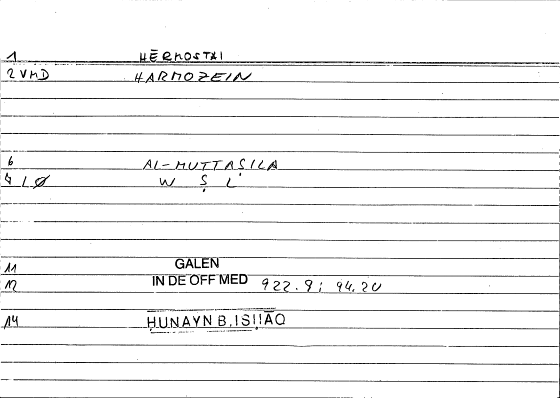 1 HĒRMOSTAI
2 VMD HARMOZEIN
6 AL-MUTTAṢILA
9 10 W Ṣ L
11 GALEN
12 IN DE OFF MED 922.9; 94.20
14 ḤUNAYN B. ISḤĀQ